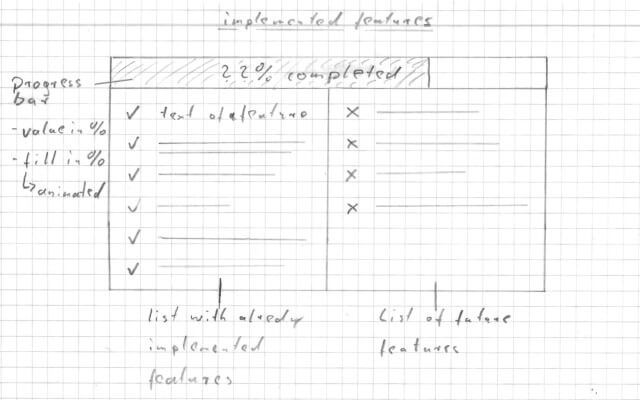 implemented features
22% completed
progress
bar
- value in %
- fill in %
↳ animated
✓ text of a feature
list with alredy
implemented
features
List of future
features